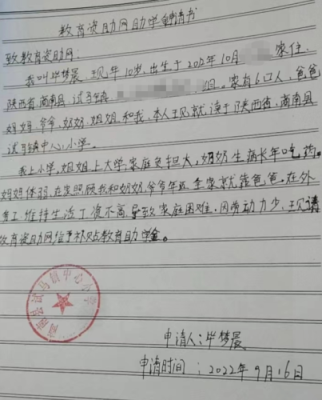 教育资助网助学申请书
致教育资助网:
我叫毕梦晨 现年10岁,出生于2012年10月 家住
陕西省,商南县,试马镇 家有6口人,爸爸
妈妈,爷爷,奶奶,姐姐,和我,本人现就读于陕西省,商南县
试马镇中心小学。
我上小学,姐姐上大学,家庭负担大,奶奶生病长年吃药。
妈妈体弱,在家照顾我和奶奶,爷爷年迈,全家就靠爸爸。在外
务工,维持生活,收入不高,导致家庭困难,因劳动力少,现请
教育资助网给予补贴教育助学金。
商南县试马镇中心小学
申请人:毕梦晨
申请时间:2022年9月16日